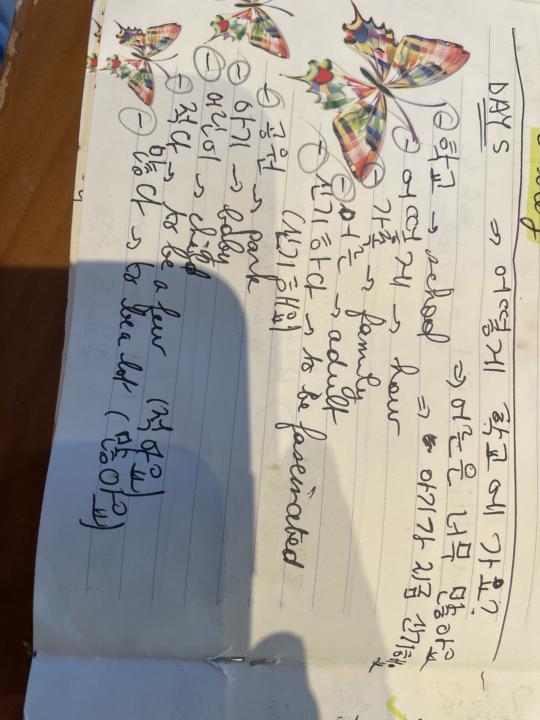 DAY 5 ⇒ 어떻게 학교에 가요?
- 학교 → school ⇒ 어른은 너무 많아요
- 어떡게 → how ⇒ 아기가 지금 신기해요
- 가족 → family
- 어른 → adult
- 신기하다 → to be fascinated
(신기해요)
- 공원 → park
- 아기 → baby
- 어린이 → child
- 적다 → to be a few (적어요)
- 많다 → to be a lot (많아요)